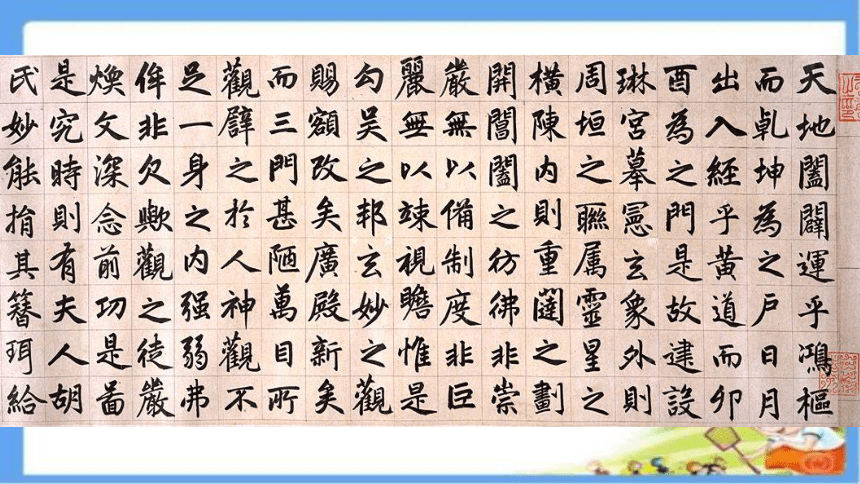 天地闔闢運乎鴻樞
而乹坤為之戶日月
出入經乎黃道而卯
酉為之門是故建設
琳宮摹憲玄象外則
周垣之聯属靈星之
橫陳内則重闥之劃
開閶闔之彷彿非崇
嚴無以備制度非巨
麗無以竦視瞻惟是
勾吳之邦玄妙之觀
賜額改矣廣殿新矣
而三門甚陋萬目所
觀譬之於人神觀不
足一身之内强弱弗
侔非欠歟觀之徒嚴
煥文深念前功是啚
是究時則有夫人胡
氏妙能捐其簪珥給